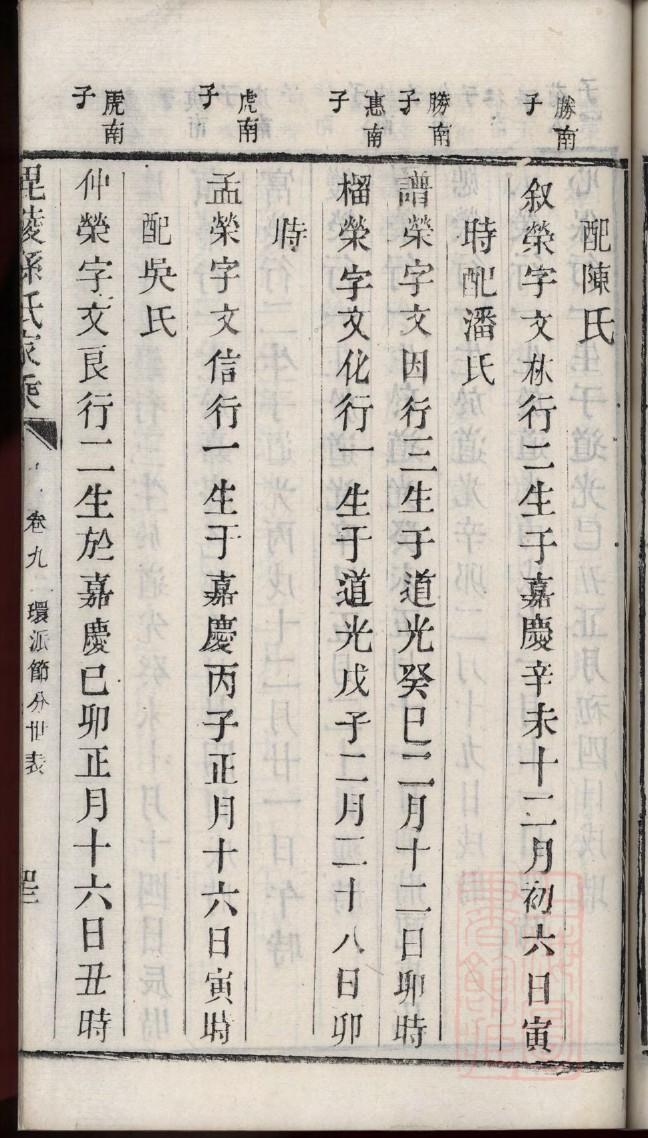 配陳氏
勝南子
叙榮字文林行二生于嘉慶辛未十二月初六日寅
時配潘氏
勝南子
譜榮字文因行三生于道光癸巳二月十二日卯時
惠南子
榴榮字文化行一生于道光戊子二月二十八日卯
時
虎南子
孟榮字文信行一生于嘉慶丙子正月十六日寅時
配吳氏
虎南子
仲榮字文良行二生於嘉慶己卯正月十六日丑時
毘陵孫氏家乘
卷九 環派節分世表